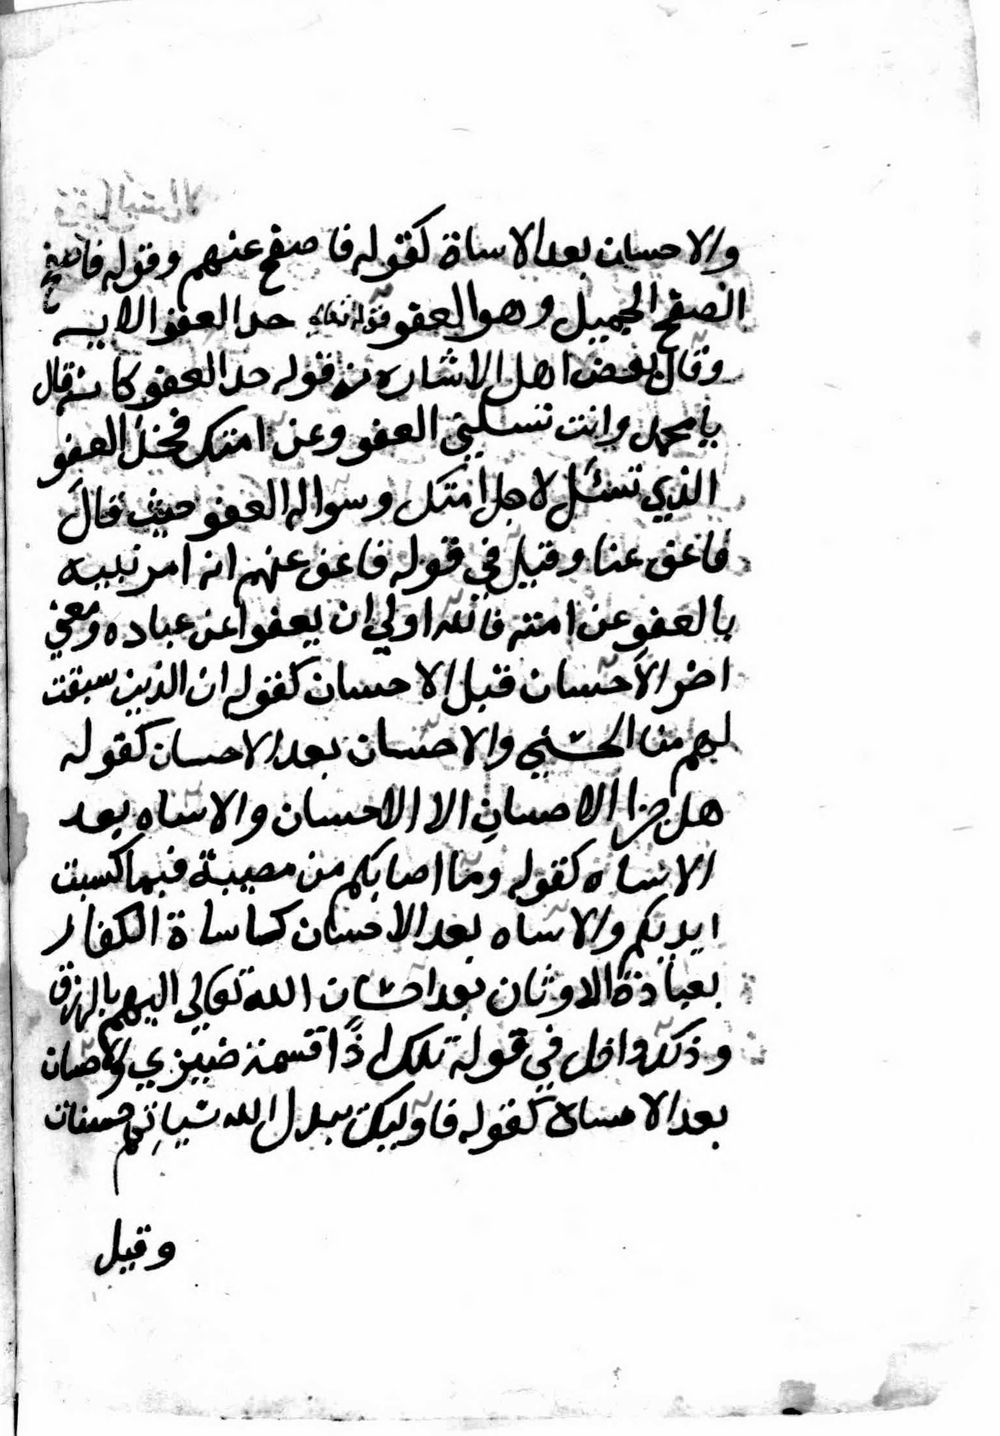 والاحسان بعد الاساة كقوله فاصفح عنهم وقوله فاصفح
الصفح الجميل وهو العفو قوله تعالى خذ العفو الايه
وقال بعض اهل الاشاره في قوله خذ العفو كانه قال
يا محمد وانت تسئلني العفو وعن امتك فخذ العفو
الذي تسئل لاجل امتك وسواله العفو حيث قال
فاعف عنا وقيل في قوله فاعف عنهم انه امر نبيه
بالعفو عن امته فالله اولي ان يعفوا عن عباده ومعني
اخر الاحسان قبل الاحسان كقوله ان الذين سبقت
لهم منا الحسني والاحسان بعد الاحسان كقوله
هل جزا الاحسان الا الاحسان والاساه بعد
الاساه كقوله وما اصابكم من مصيبة فبما كسبت
ايديكم والاساه بعد الاحسان كاساة الكفار
بعبادة الاوثان بعد احسان الله تعالي اليهم بالرزق
وذلك داخل في قوله تلك اذًا قسمة ضيزي والاحسان
بعد الاساة كقوله فاوليك يبدل الله سياتهم حسنات
وقيل